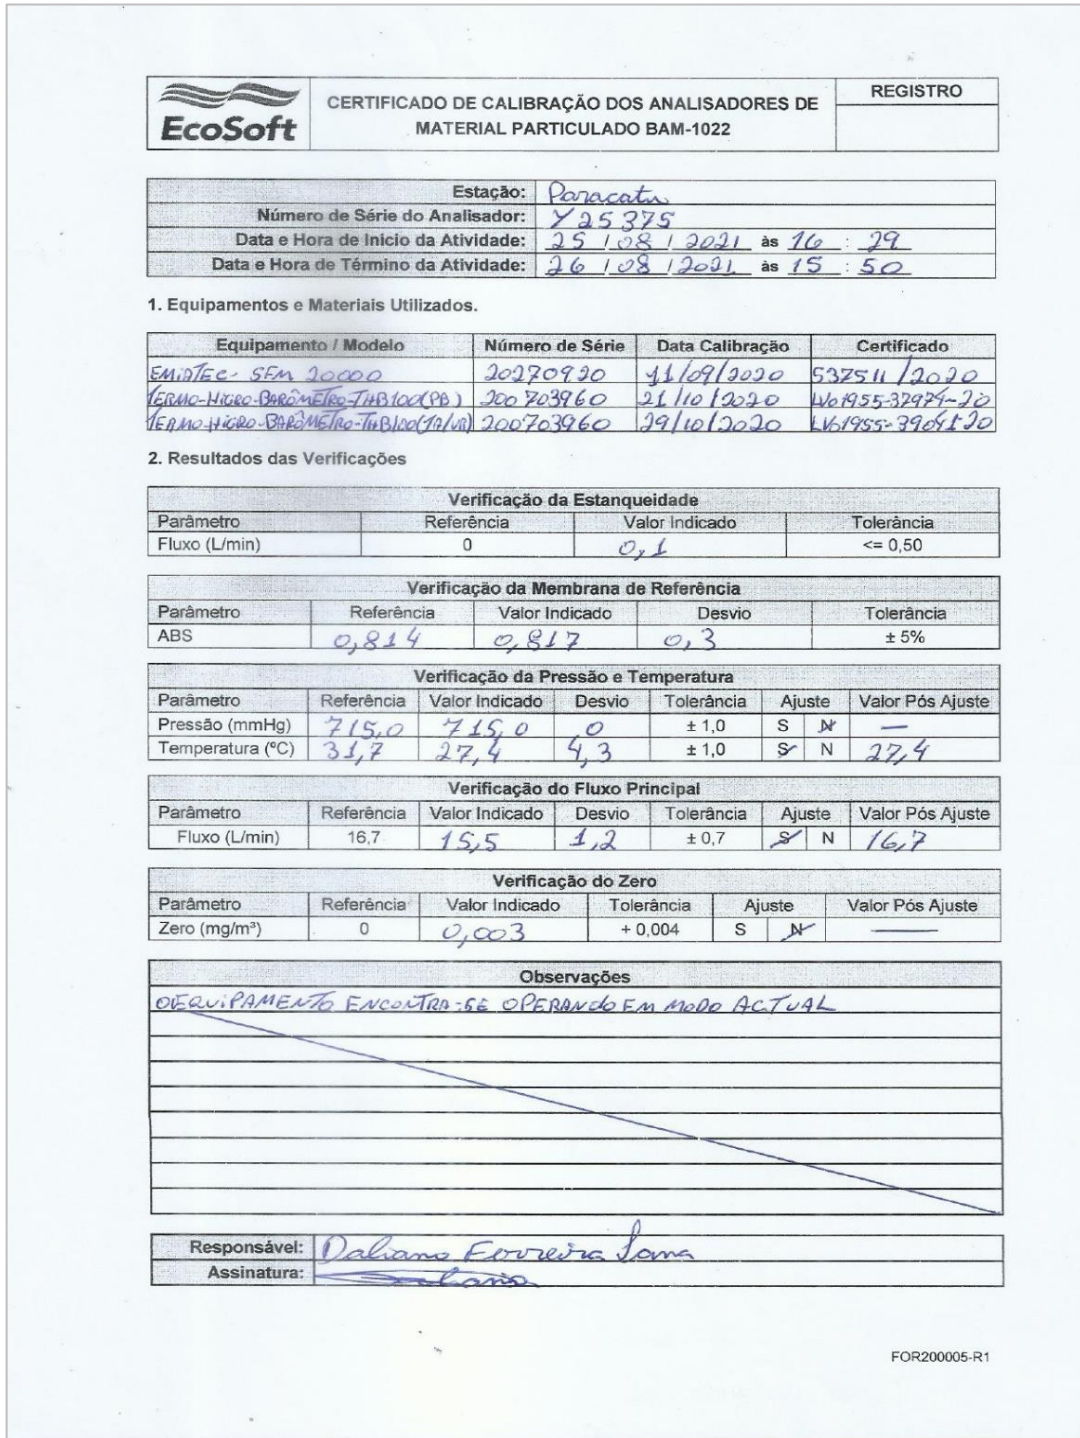 EcoSoft
CERTIFICADO DE CALIBRAÇÃO DOS ANALISADORES DE
MATERIAL PARTICULADO BAM-1022
REGISTRO
Estação: Paracatu
Número de Série do Analisador: Y25375
Data e Hora de Início da Atividade: 25 / 08 / 2021 às 16 : 29
Data e Hora de Término da Atividade: 26 / 08 / 2021 às 15 : 50
1. Equipamentos e Materiais Utilizados.
Equipamento / Modelo Número de Série Data Calibração Certificado
SFM 20000 20270920 11/09/2020 537511/2020
TERMO-HIGRO-BARÔMETRO-THB100(PB) 200703960 21/10/2020 LV01955-37974-20
TERMO-HIGRO-BARÔMETRO-THB100 200703960 29/10/2020
2. Resultados das Verificações
Verificação da Estanqueidade
Parâmetro Referência Valor Indicado Tolerância
Fluxo (L/min) 0 0,1 <= 0,50
Verificação da Membrana de Referência
Parâmetro Referência Valor Indicado Desvio Tolerância
ABS 0,814 0,817 0,3 ± 5%
Verificação da Pressão e Temperatura
Parâmetro Referência Valor Indicado Desvio Tolerância Ajuste Valor Pós Ajuste
Pressão (mmHg) 715,0 715,0 0 ± 1,0 S N —
Temperatura (ºC) 31,7 27,4 4,3 ± 1,0 S N 27,4
Verificação do Fluxo Principal
Parâmetro Referência Valor Indicado Desvio Tolerância Ajuste Valor Pós Ajuste
Fluxo (L/min) 16,7 15,5 1,2 ± 0,7 S N 16,7
Verificação do Zero
Parâmetro Referência Valor Indicado Tolerância Ajuste Valor Pós Ajuste
Zero (mg/m³) 0 0,003 + 0,004 S N —
Observações
O EQUIPAMENTO ENCONTRA-SE OPERANDO EM MODO ACTUAL
Responsável: Daliana Ferreira
Assinatura:
FOR200005-R1